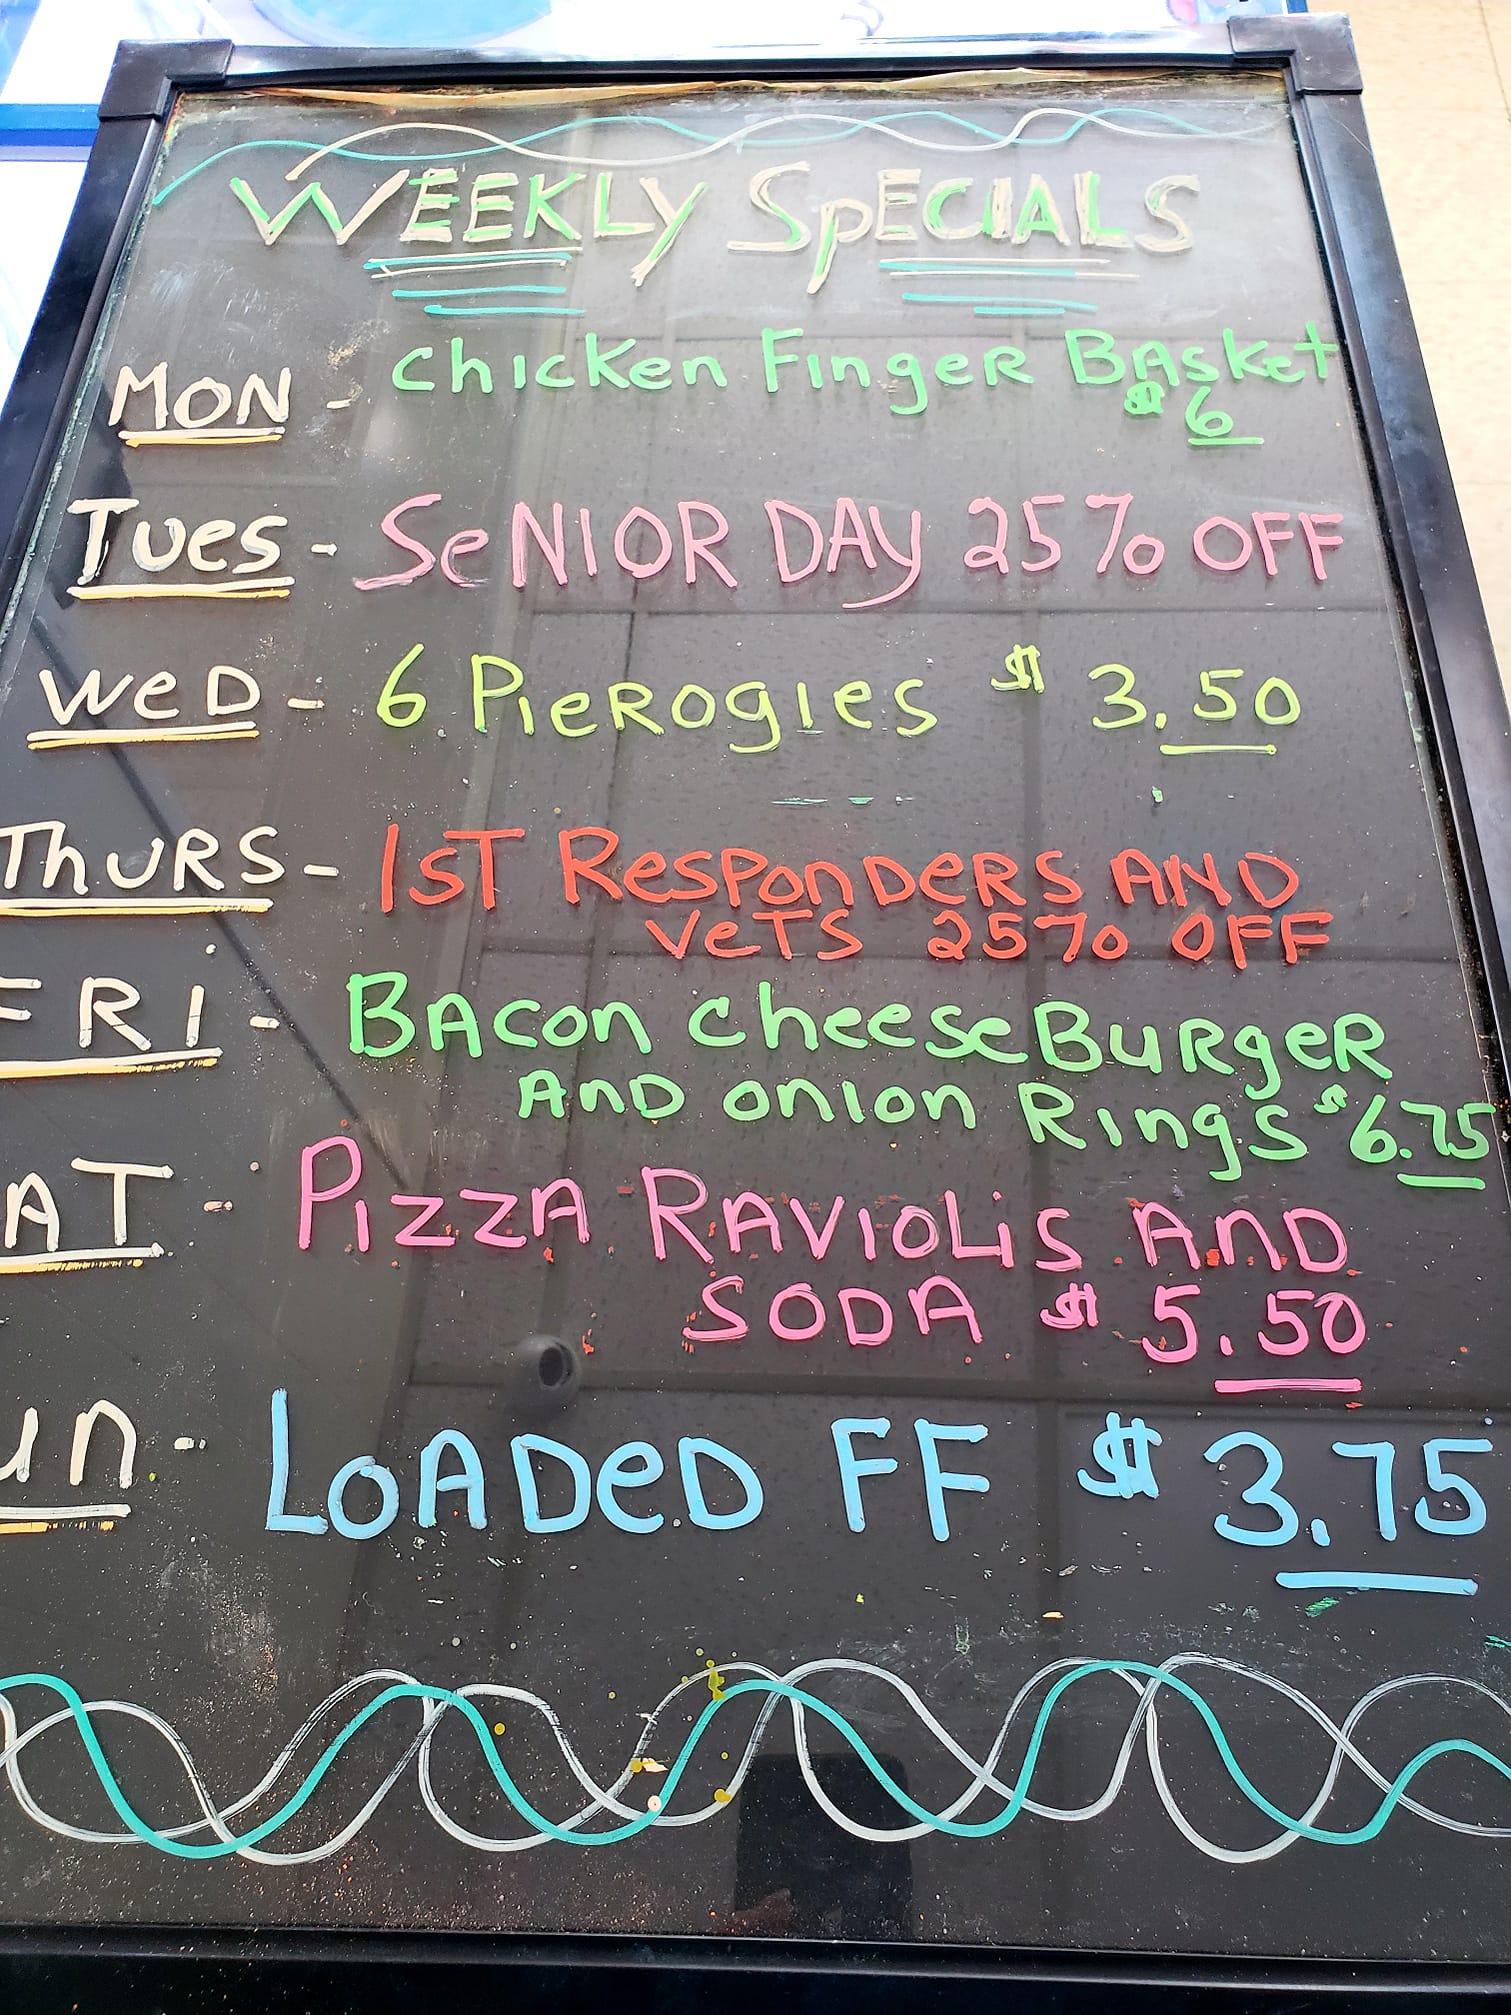 WEEKLY SPECIALS
MON - Chicken Finger Basket
$6
Tues - SeNIOR DAY 25% OFF
WeD - 6 PieROgies $3.50
ThURS - 1ST ResponDeRS AND
VeTS 25% OFF
FRI - BAcon cheeseBuRgeR
AND onion Rings $6.75
AT - PizzA RAVIOLiS AnD
SODA $5.50
un - LOADeD FF $3.75